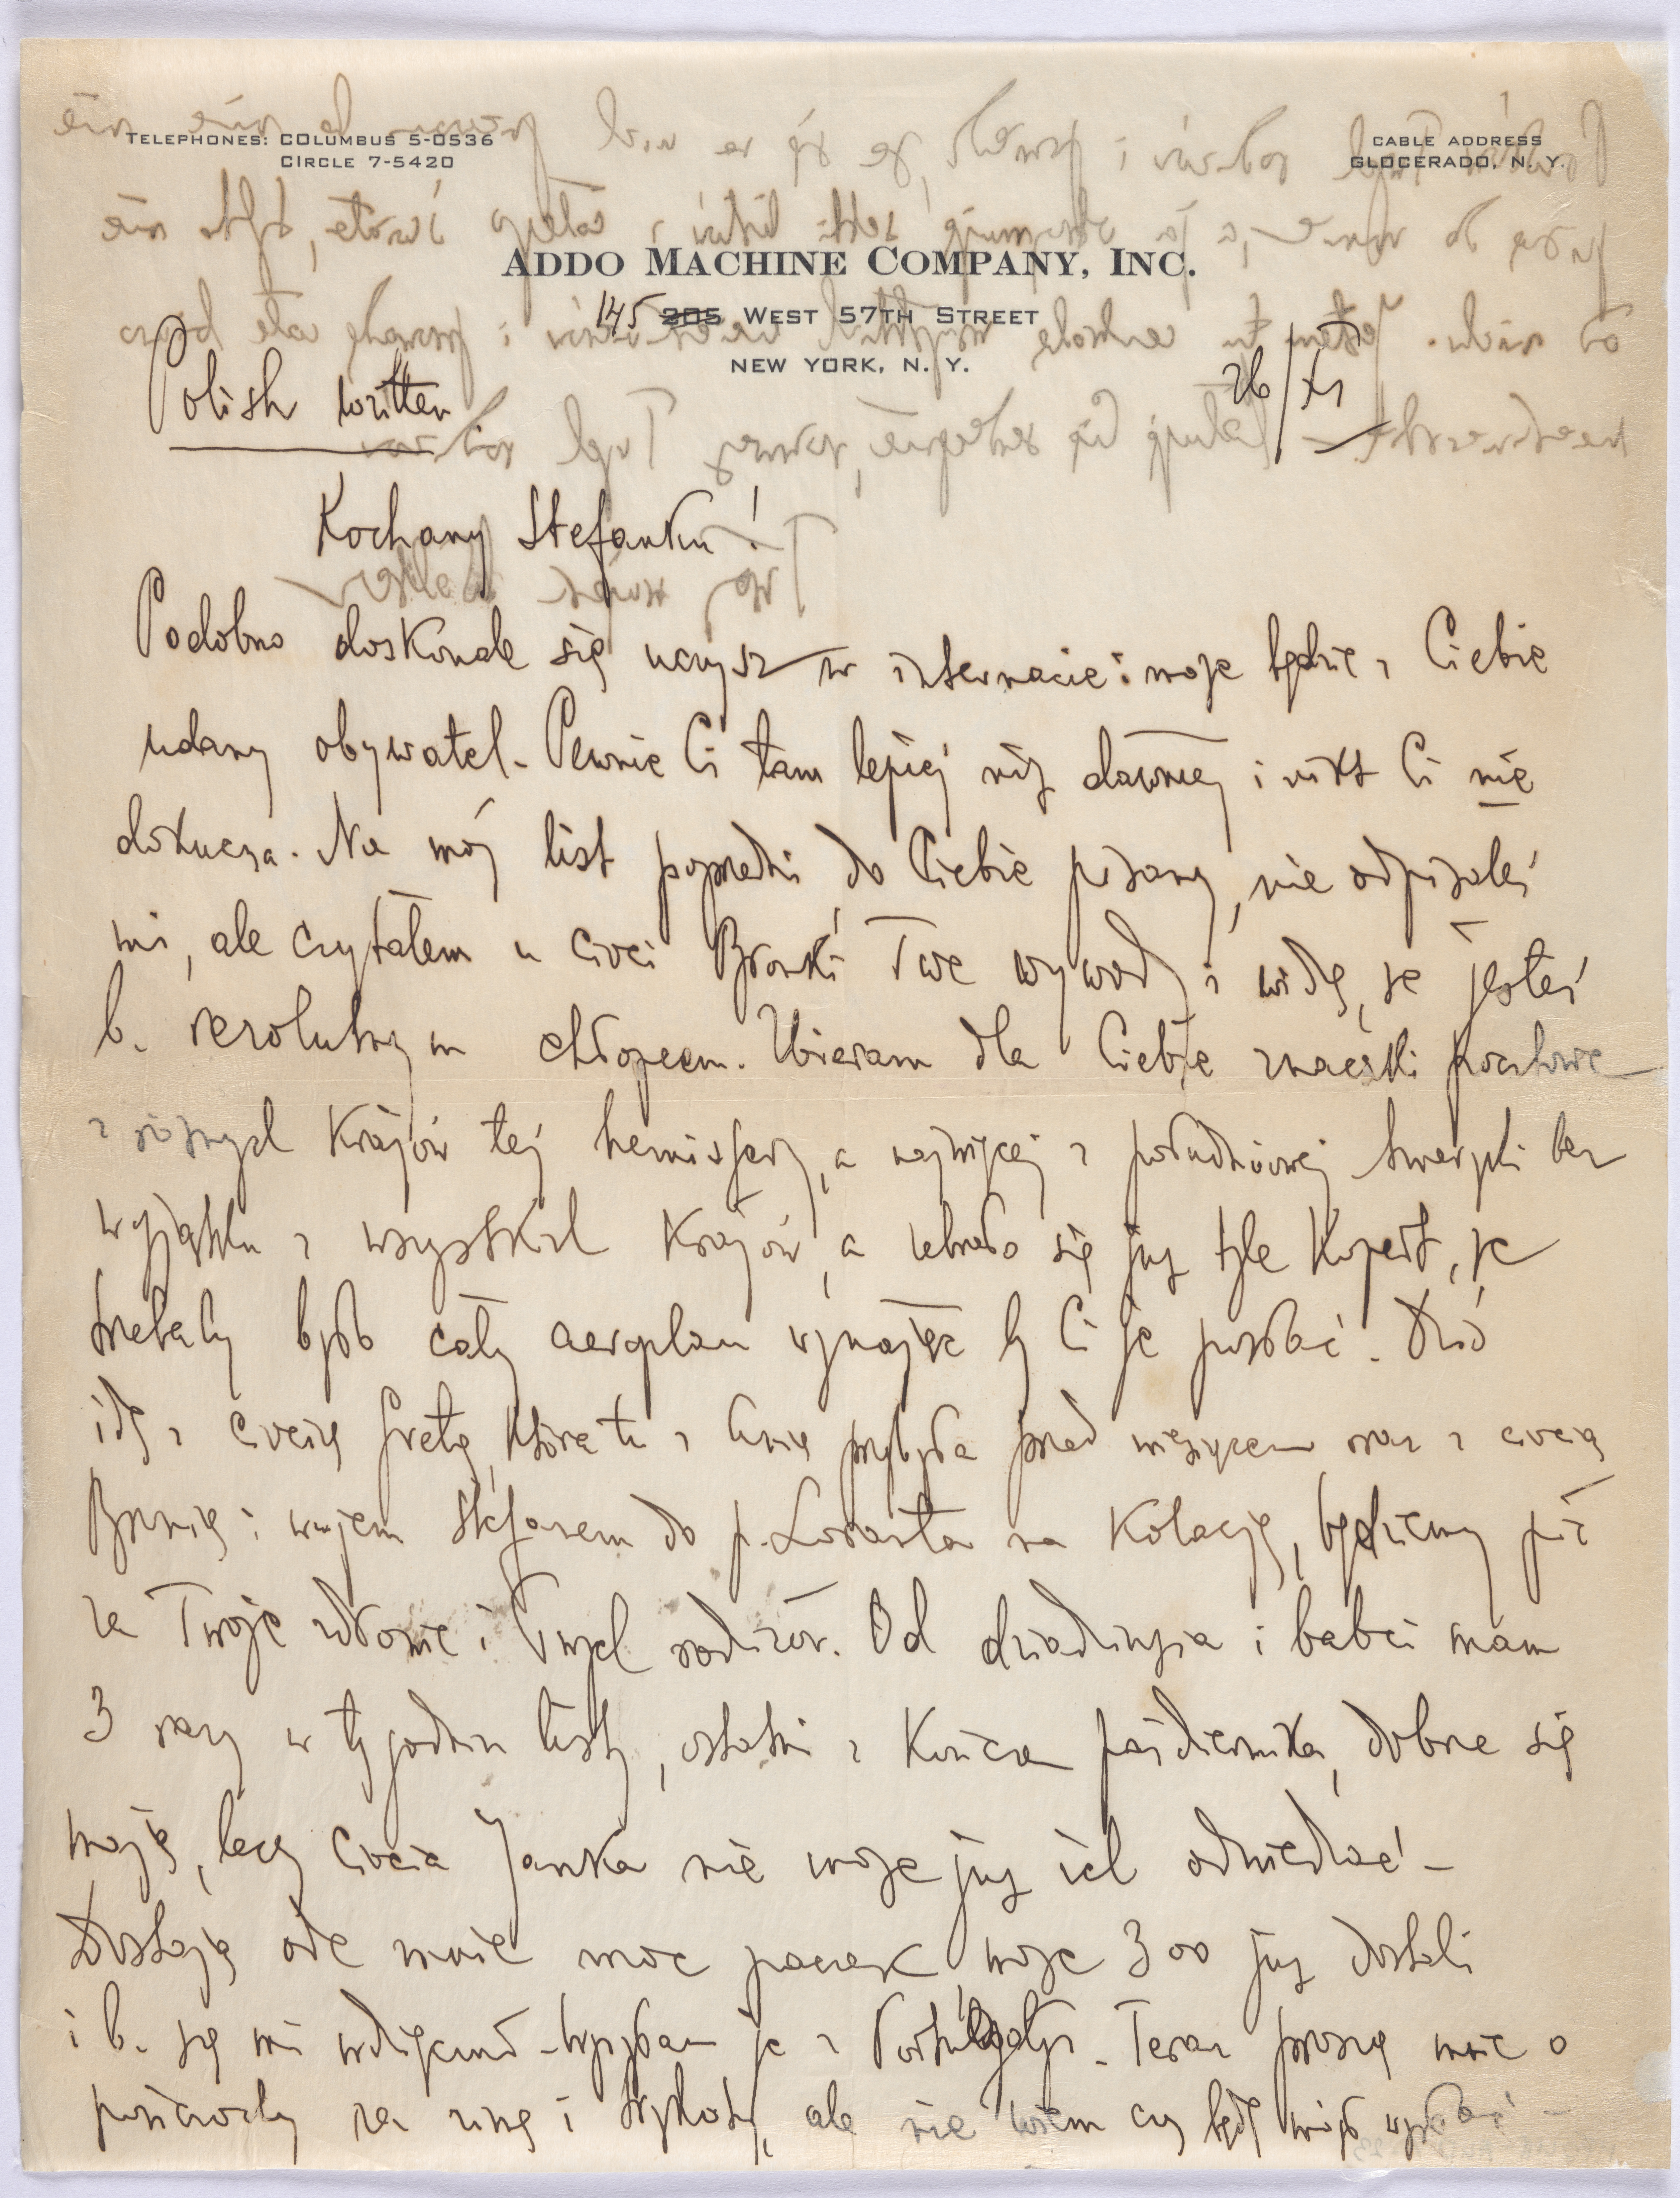 TELEPHONES: COLUMBUS 5-0536
CIRCLE 7-5420
CABLE ADDRESS
GLOCERADO, N. Y.
ADDO MACHINE COMPANY, INC.
145 205 WEST 57TH STREET
NEW YORK, N. Y.
Polish written
26/XI
Kochany Stefanku!
Podobno doskonale się uczysz w internacie i może będzie z Ciebie
udany obywatel. Pewnie Ci tam lepiej niż dawniej i nikt Ci nie
dokucza. Na mój list poprzedni do Ciebie pisany, nie odpisałeś
mi, ale czytałem u cioci Bronki Twe wywody i widzę, że jesteś
b. rezolutnym chłopcem. Zbieram dla Ciebie znaczki pocztowe
z różnych krajów tej hemisfery, a najwięcej z południowej Ameryki bez
wyjątku z wszystkich krajów, a zebrało się już tyle kopert, że
trzebaby było cały aeroplan wynająć by Ci je posłać. Dziś
idę z ciocią Gretą, która tu z przybyła przed miesiącem oraz z ciocią
Bronią i wujem Stefanem do p. na kolację, będziemy pić
za Twoje zdrowie i Twych rodziców. Od dziadziusia i babci mam
3 razy w tygodniu listy, ostatni z końca października, dobrze się
mają, lecz ciocia Janka nie może już ich odwiedzać -
Dostają ode mnie moc paczek, może 300 już dostali
i b. są mi wdzięczni - wysyłam je z Portugalji. Teraz proszą mnie o
pończochy na zimę i trykoty, ale nie wiem czy będę mógł wysłać -